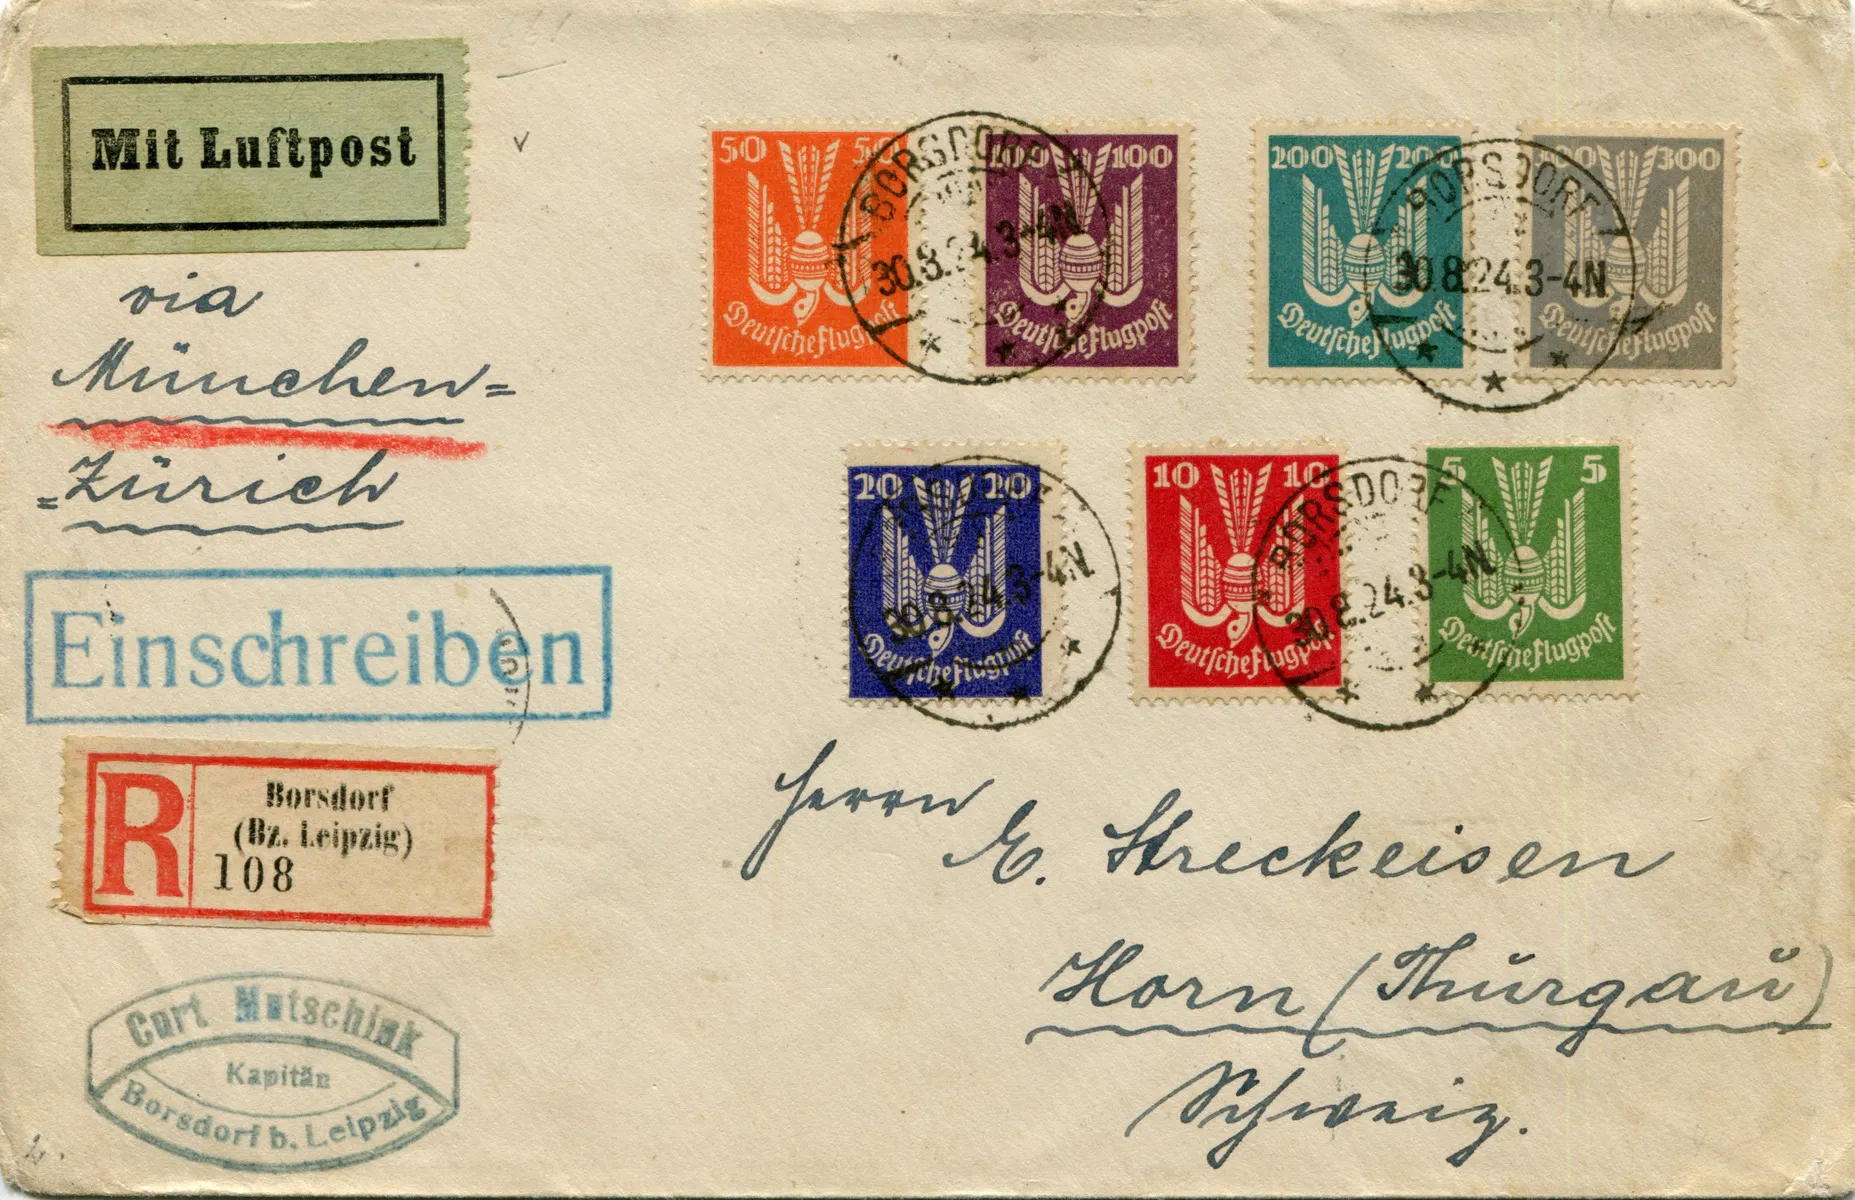 Mit Luftpost
via
München=
=Zürich
Einschreiben
R
Borsdorf
(Bz. Leipzig)
108
Curt Mutschink
Kapitän
Borsdorf b. Leipzig
50 50
Deutsche Flugpost
100 100
Deutsche Flugpost
BORSDORF
30.8.24.3-4N
200 200
Deutsche Flugpost
300 300
Deutsche Flugpost
BORSDORF
30.8.24.3-4N
20 20
Deutsche Flugpost
BORSDORF
30.8.24.3-4N
10 10
Deutsche Flugpost
5 5
Deutsche Flugpost
BORSDORF
30.8.24.3-4N
Herrn
E. Streckeisen
Horn (Thurgau)
Schweiz.